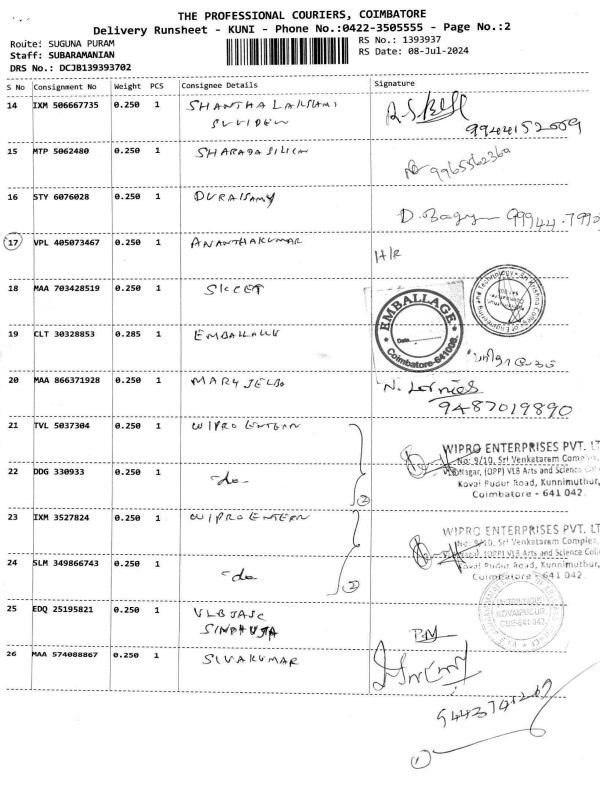 THE PROFESSIONAL COURIERS, COIMBATORE
Delivery Runsheet - KUNI - Phone No.:0422-3505555 - Page No.:2
Route: SUGUNA PURAM
RS No.: 1393937
Staff: SUBARAMANIAN
RS Date: 08-Jul-2024
DRS No.: DCJB139393702
S No Consignment No Weight PCS Consignee Details Signature
14 IXM 506667735 0.250 1 SHANTHA LAKSHMI
9944152009
15 MTP 5062480 0.250 1 SHARADA SILICON
9965562360
16 STY 6076028 0.250 1 DURAISAMY
17 VPL 405073467 0.250 1 ANANTHAKUMAR H/R
18 MAA 703428519 0.250 1 SKCET
Sri Krishna College of Engineering and Technology
19 CLT 30328853 0.285 1 EMBALLAGE
EMBALLAGE
Date
Coimbatore-641008.
20 MAA 866371928 0.250 1 MARY JELBO
9487019890
21 TVL 5037304 0.250 1 WIPRO ENTERN
WIPRO ENTERPRISES PVT. LT
No: 9/10, Sri Venkataram Complex,
22 DDG 330933 0.250 1 -do- 2
Nagar, (OPP) VLB Arts and Science
Kovai Pudur Road, Kunnimuthur,
Coimbatore - 641 042.
23 IXM 3527824 0.250 1 WIPRO ENTERN
WIPRO ENTERPRISES PVT. LT
No: 9/10, Sri Venkataram Complex,
24 SLM 349866743 0.250 1 -do- 2
(OPP) VLB Arts and Science Coll
Kovai Pudur Road, Kunnimuthur,
Coimbatore - 641 042.
25 EDQ 25195821 0.250 1 VLBJASC
SINDHUJA
KOVAIPUDUR
CBE-641 042
26 MAA 574088867 0.250 1 SIVAKUMAR